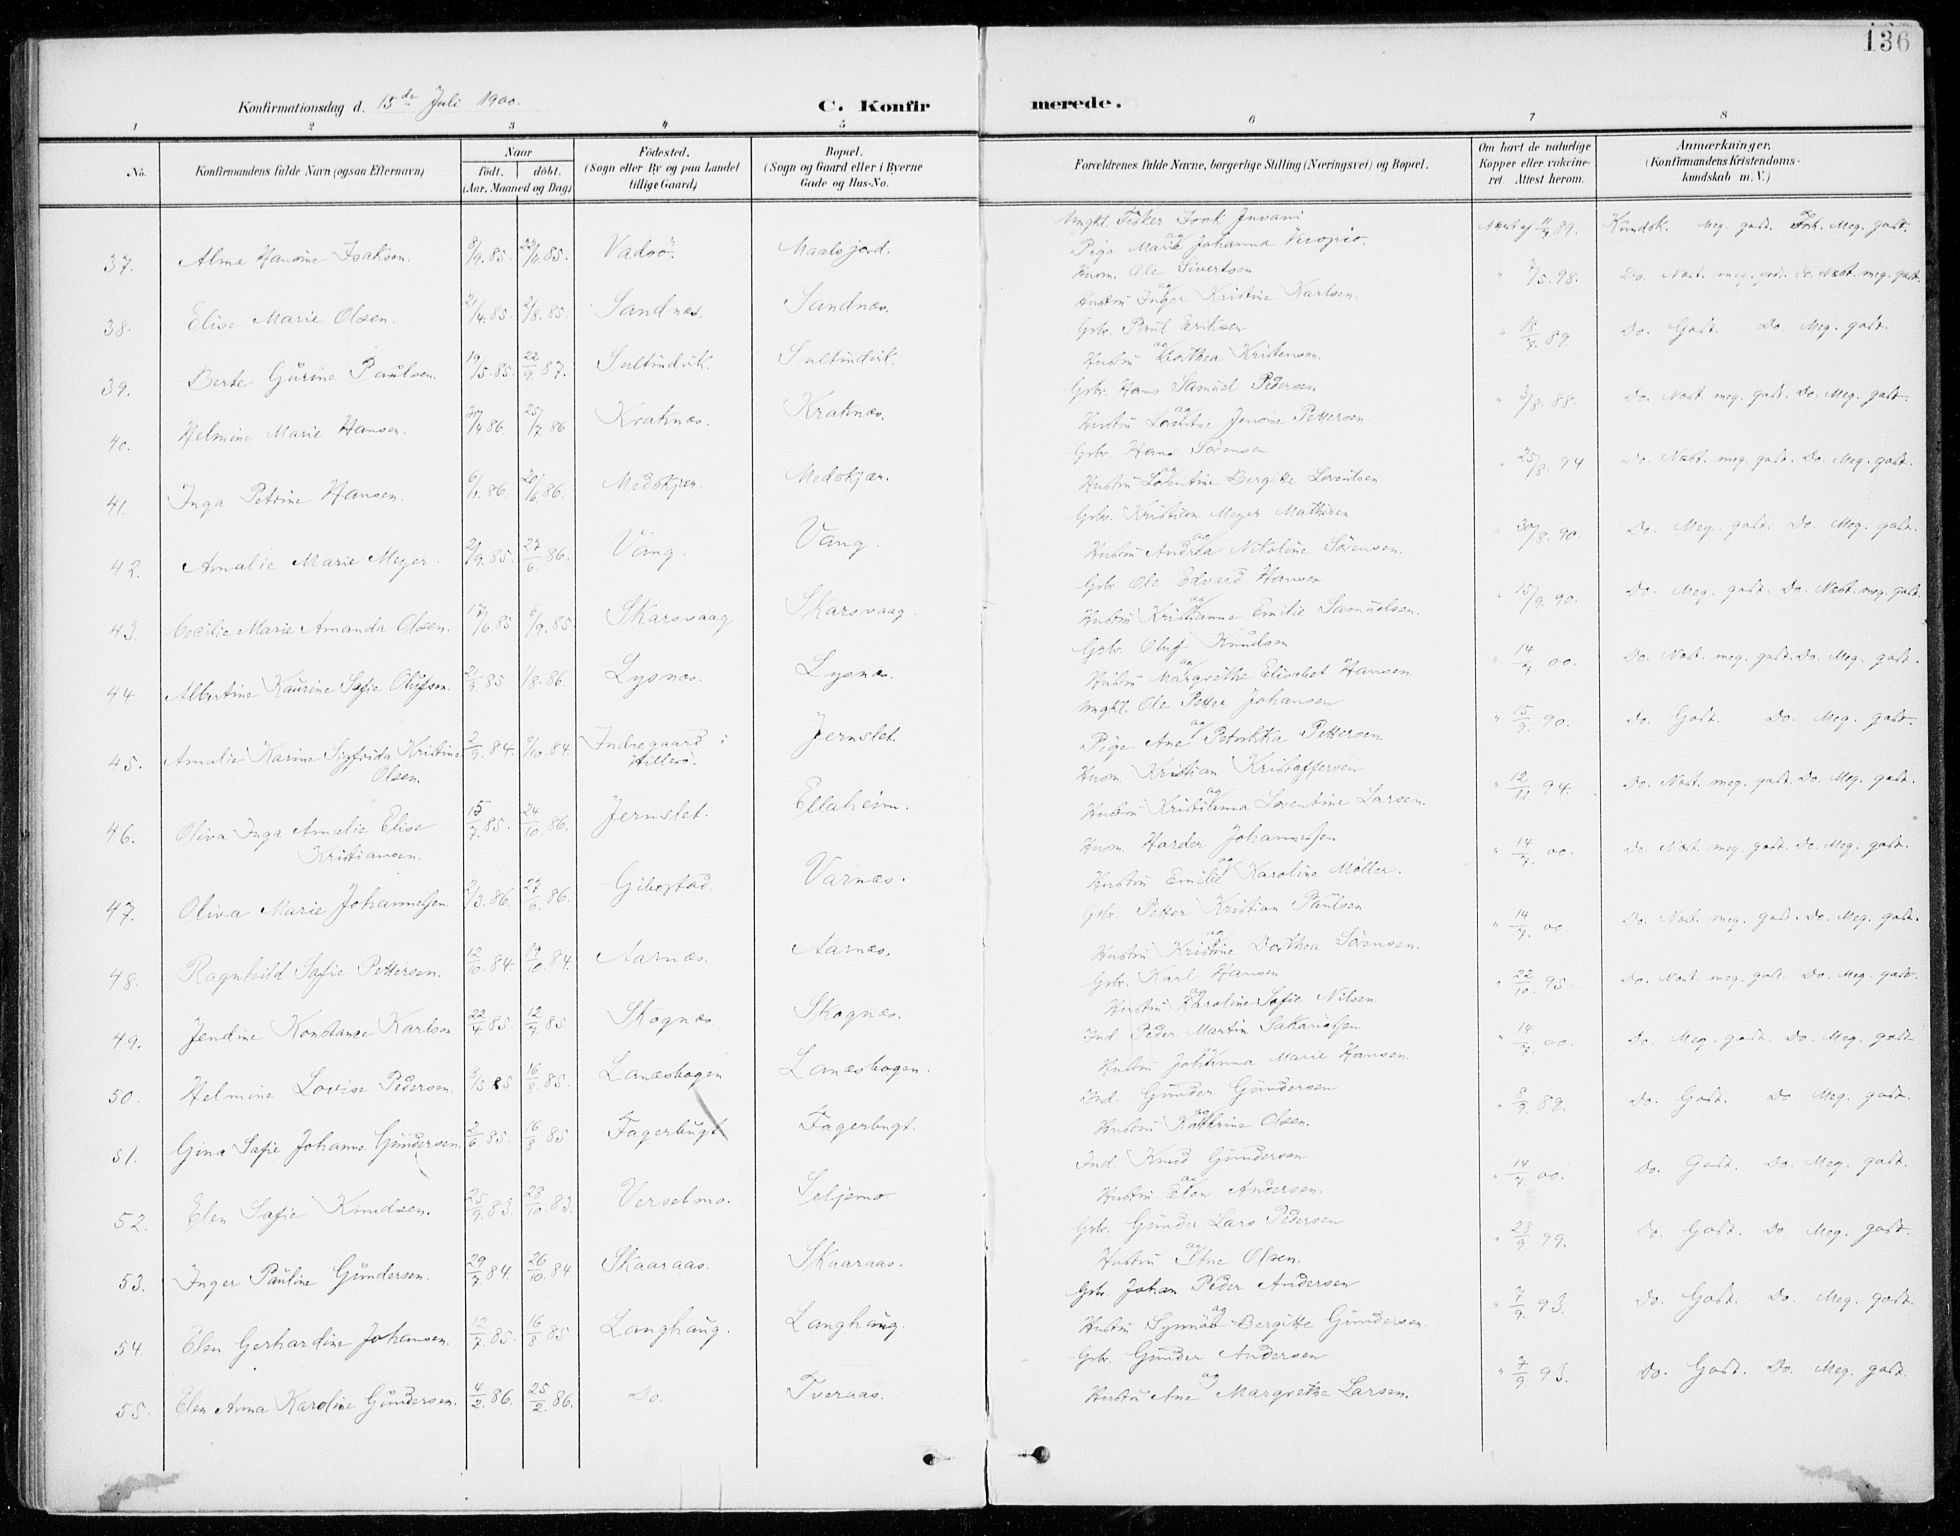 136
Konfirmationsdag d. 15de Juli 1900.
C. Konfirmerede.
1 2 3 4 5 6 7 8
No.
Konfirmandens fulde Navn (ogsaa Efternavn)
Naar
födt. döbt.
(Aar, Maaned og Dag)
Födested.
(Sogn eller By og paa Landet
tillige Gaard)
Bopæl.
(Sogn og Gaard eller i Byerne
Gade og Hus-No.
Forældrenes fulde Navne, borgerlige Stilling (Næringsvei) og Bopæl.
Om havt de naturlige
Kopper eller vakcine-
ret. Attest herom.
Anmærkninger,
(Konfirmandens Kristendoms-
kundskab m. V.)
37. Alma Hansine Isaksen. 8/9.85. 22/11.85. Vadsö. Maalsjord. Ungkl. Fisker Isak Juvani og Pige Marie Johanna Veropio. Attest af 11/7 89. Kundsk. Meg. godt. Forh. Meg. godt.
38. Elise Marie Olsen. 21/4.85. 2/8.85. Sandnæs. Sandnæs. Husm. Ole Sivertsen og Hustru Inger Kristine Karlsen. " 7/5.98. Do. Næst. meg. godt. Do. Næst. meg. godt.
39. Berte Gurine Paulsen. 19/5.85. 22/9.87. Sultindvik. Sultindvik. Gbr. Paul Eriksen og Hustru Dorthea Kristensen. " 18/7 89 Do. Godt. Do. Meg. godt.
40. Helmine Marie Hansen. 30/4.86. 25/7.86 Kraknæs. Kraknæs. Gbr. Hans Samuel Pedersen og Hustru Lovise Jensine Pettersen. " 3/8.88. Do. Næst meg. godt. Do. Meg. godt.
41. Inga Petrine Hansen. 6/1.86. 20/6.86. Medskjær. Medskjær. Gbr. Hans Sörensen og Hustru Lorentine Bergitte Lorentsen " 25/8.94 Do. Næst. meg. godt. Do. Meg. godt.
42. Amalie Marie Meyer. 2/9.85. 27/6.86. Vang. Vang. Gbr. Kristian Meyer Mathisen og Hustru Andrea Nikoline Sörensen. " 30/8.90. Do. Meg. godt. Do. Meg. godt.
43. Cecilie Marie Amanda Olsen. 17/6.85 6/9.85. Skarsvaag Skarsvaag. Gbr. Ole Edvard Hansen og Hustru Kristianne Emilie Samuelsen. " 15/9.90. Do. Meg. godt. Do. Næst. meg. godt.
44. Albertine Kaurine Sofie Olufsen. 1/8.86. Lysnæs. Lysnæs. Gbr. Oluf Knudsen og Hustru Margrethe Elisabet Hansen. " 14/7 00. Do. Næst. meg. godt. Do. Meg. godt.
45. Amalie Karine Sigfrida Kristine Olsen. 2/9.84. 9/10.84. Indregaard i Hillesö. Jernslet. Ungkl. Ole Petter Johansen og Pige Ane Petrikka Pettersen " 15/9 90. Do. Godt. Do. Meg. godt.
46. Oliva Inga Amalie Elise Kristiansen. 15/7.85. 24/10.86. Jernslet. Ellaheim. Husm. Kristian Kristoffersen og Hustru Kristianna Lorentine Larsen. " 12/11 94. Do. Næst. meg. godt. Do. Meg. godt.
47. Oliva Marie Johannessen. 2/3.86. 27/6.86. Gibostad. Varnæs. Husm. Harder Johannessen og Hustru Emilie Karoline Möller. " 14/7 00. Do. Næst. meg. godt. Do. Meg. godt.
48. Ragnhild Sofie Pettersen. 12/10.84. 19/10.84. Aarnæs. Aarnæs. Gbr. Petter Kristian Paulsen og Hustru Kristine Dorthea Sörensen. " 14/7 00. Do. Næst. meg. godt. Do. Meg. godt.
49. Jendine Konstance Karlsen 22/4.85. 12/7.85 Skognæs. Skognæs. Gbr. Karl Hansen og Hustru Karoline Sofie Nilsen. " 22/10 95. Do. Næst. meg. godt. Do. Meg. godt.
50. Helmine Lovise Pedersen. 8/5 85 16/8.85. Lanæsbogen Lanæsbogen. Ind. Peder Martin Sakariassen og Hustru Johanna Marie Hansen. " 14/7 00. Do. Meg. godt. Do. Meg. godt.
51. Gina Sofie Johanne Gundersen. 2/6.85. 16/8.85. Fagerbugt Fagerbugt. Ind. Gunder Gundersen og Hustru Kathrine Olsen. " 8/7 89. Do. Godt. Do. Meg. godt.
52. Elen Sofie Knudsen. 25/9.83. 28/10.83. Verselmo. Seljemo Ind. Knud Gundersen og Hustru Elen Andersen. " 14/7 00. Do. Godt. Do. Meg. godt.
53. Inger Pauline Gundersen. 29/7.84. 26/10.84. Skaaraas. Skaaraas. Gbr. Gunder Lars Pedersen og Hustru Ane Olsen. " 28/9 99. Do. Godt. Do. Meg. godt.
54. Elen Gerhardine Johansen. 12/7.85. 16/8.85 Langhaug. Langhaug. Gbr. Johan Peder Andersen og Hustru Synnöv Bergitte Gundersen. " 7/9 93. Do. Godt. Do. Meg. godt.
55. Elen Anna Karoline Gundersen. 4/2.86. 25/2.86. Do. Tveraas. Gbr. Gunder Andersen og Hustru Ane Margrethe Larsen. " 7/9 93. Do. Godt. Do. Meg. godt.